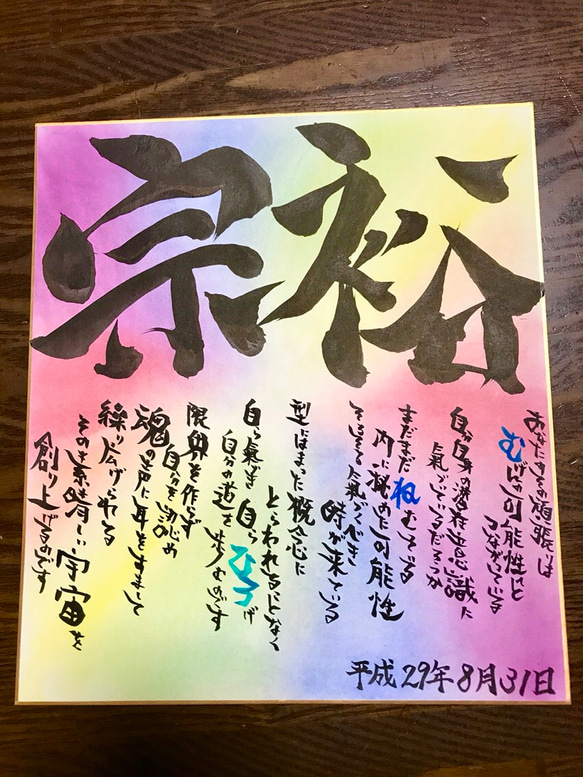 宗裕
あなたのその頑張りは
むげんの可能性へと
つながっている
自分自身の潜在意識に
氣づいているだろうか
まだまだねむっている
内に秘めた可能性
そろそろ氣づくべき
時が来ている
型にはまった概念に
とらわれることなく
自ら氣づき 自らひろげ
自分の道を歩むのです
限界を作らず
自分を認め
魂の声に耳をすまして
繰り広げられる
その素晴しい宇宙を
創り上げるのです
平成29年8月31日